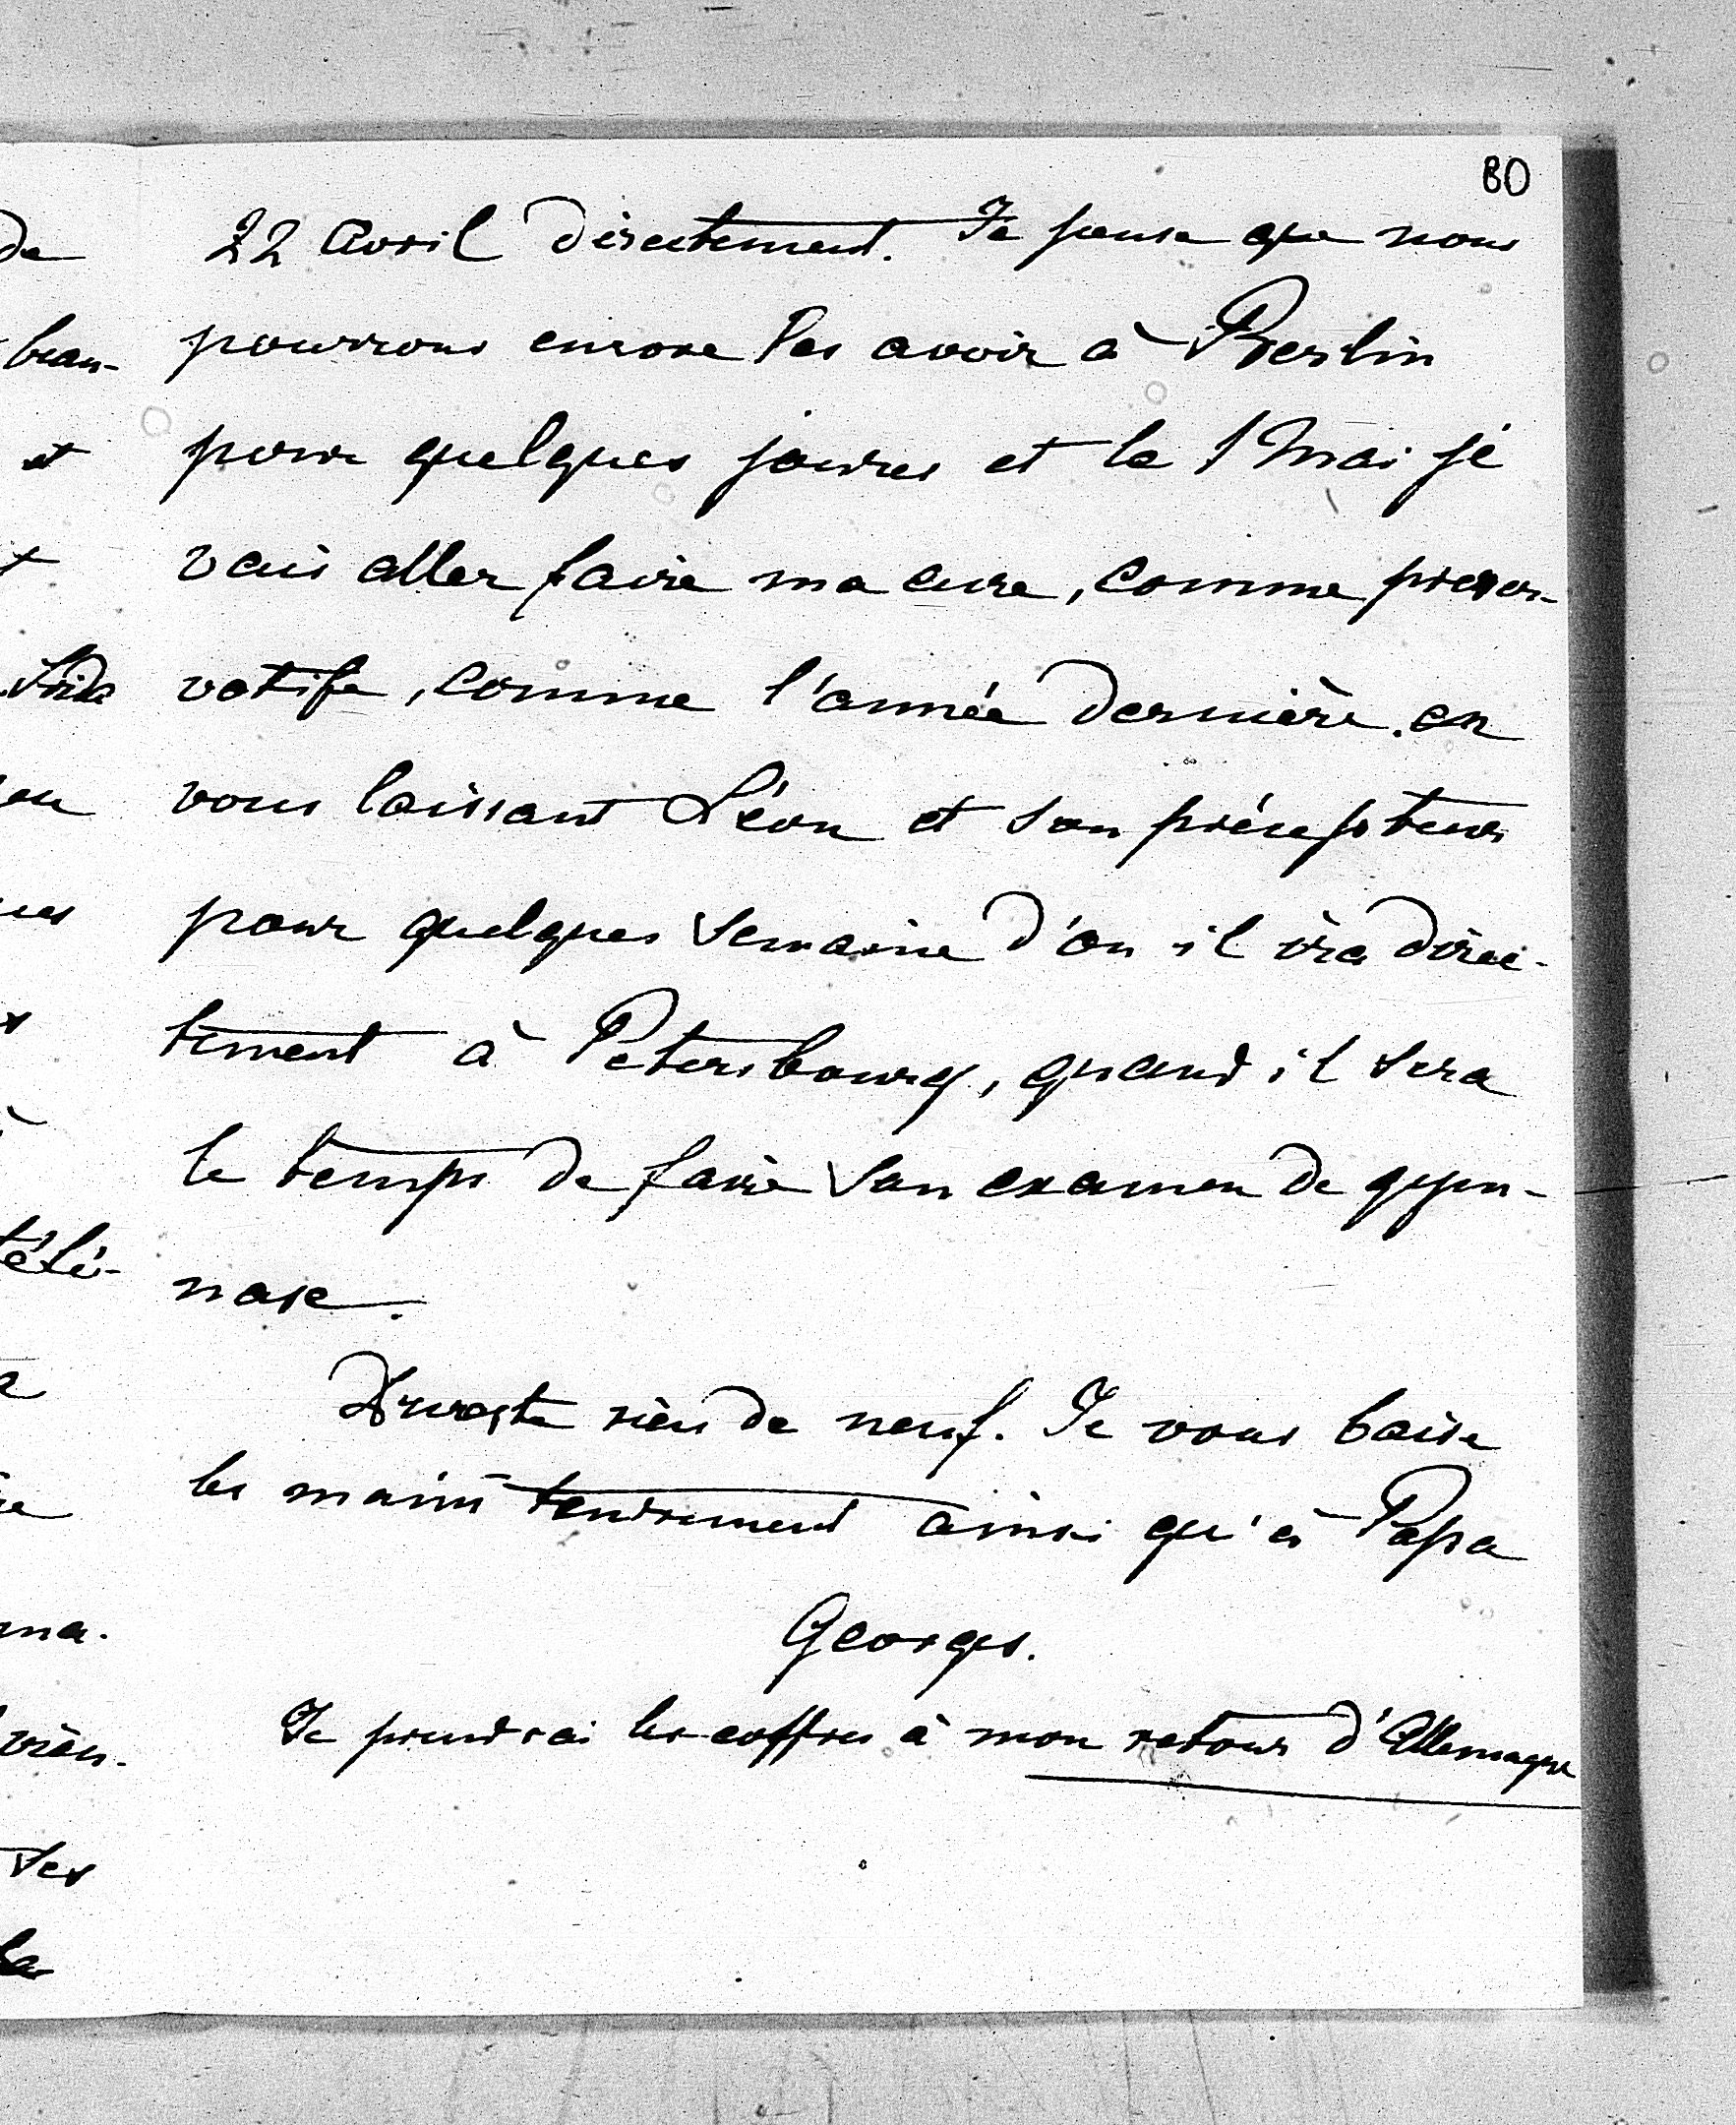 80
22 Avril directement. Je pense que nous
pourrons encore les avoir à Berlin
pour quelques joures et le 1 Mai je
vais aller faire ma cure, comme preser-
vatife, comme l'année dernière. en
vous laissant Léon et son précepteur
pour quelques semaine d'ou il ira direc-
tement à Petersbourg, quand il sera
le temps de faire son examen de gym-
nase.
Du reste rien de neuf. Je vous baise
les mains tendrement ainsi qu'à Papa
Georges.
Je prendrai les coffres à mon retour d'Allemagne
de
beau-
et
télé-
ses
la